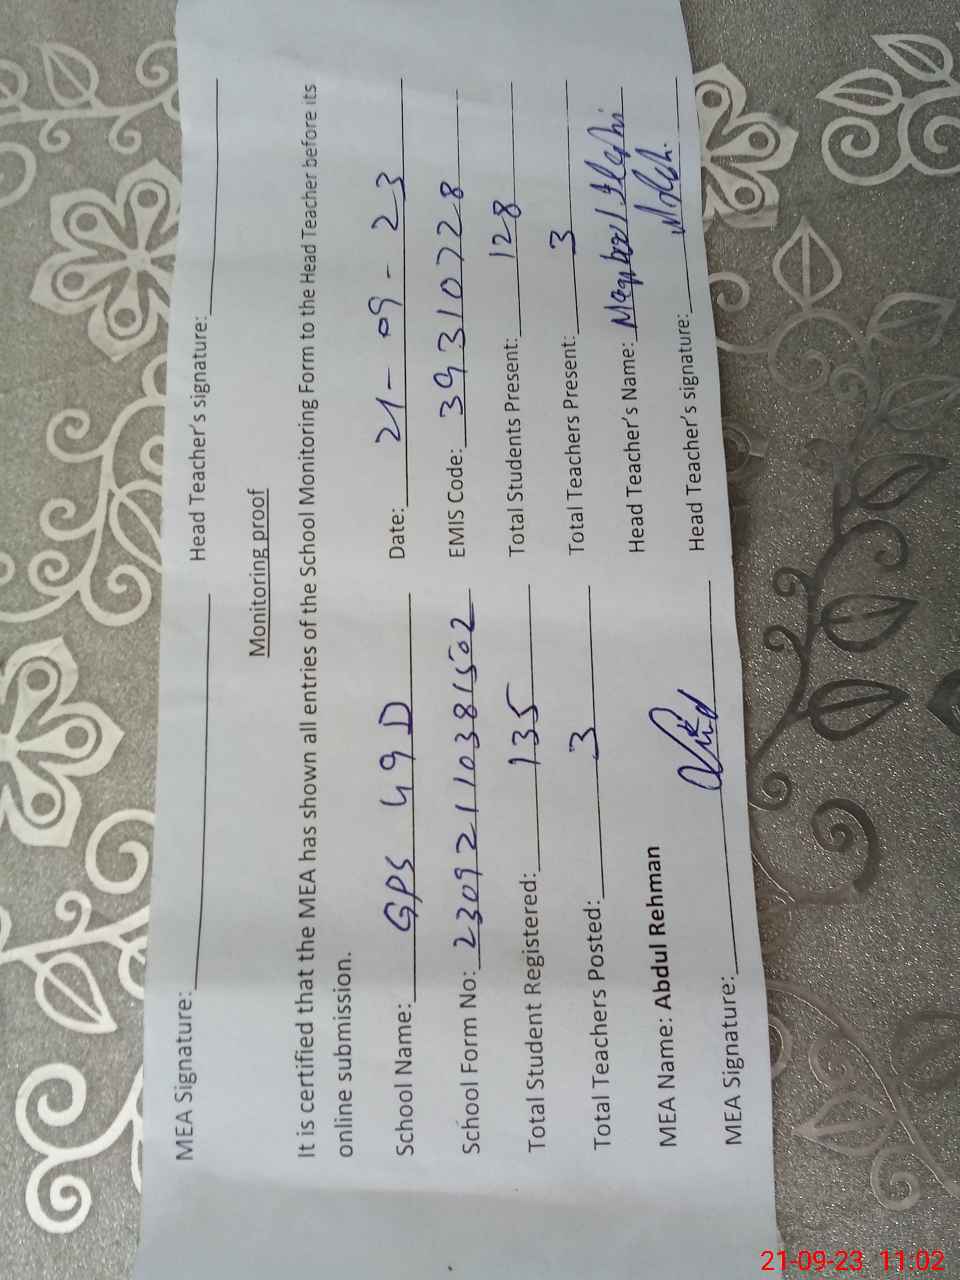 MEA Signature: Head Teacher's signature:
Monitoring proof
It is certified that the MEA has shown all entries of the School Monitoring Form to the Head Teacher before its
online submission.
School Name: GPS 49 D Date: 21-09-23
School Form No: 23092110381502 EMIS Code: 39310728
Total Student Registered: 135 Total Students Present: 128
Total Teachers Posted: 3 Total Teachers Present: 3
MEA Name: Abdul Rehman Head Teacher's Name: Maqbool Ilahi
MEA Signature: Head Teacher's signature:
21-09-23 11:02